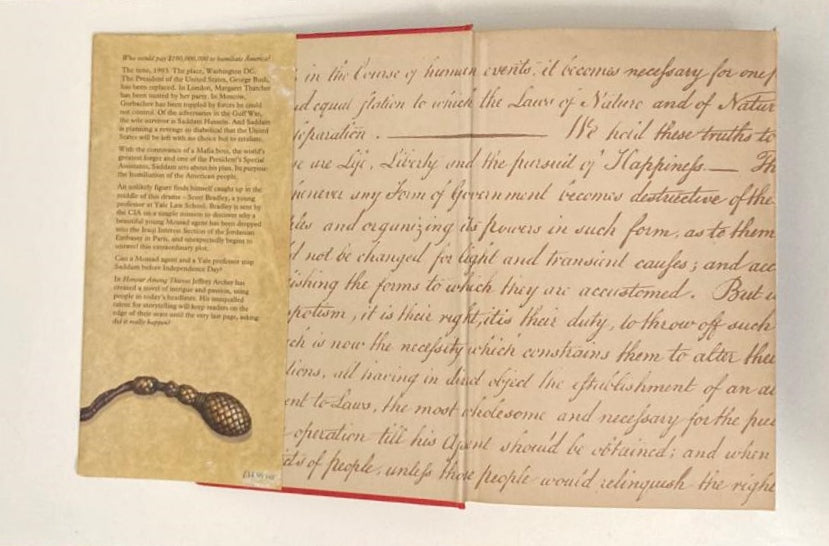 Who would pay $100,000,000 to humiliate America?
The time, 1993. The place, Washington DC.
The President of the United States, George Bush,
has been replaced. In London, Margaret Thatcher
has been ousted by her party. In Moscow,
Gorbachev has been toppled by forces he could
not control. Of the adversaries in the Gulf War,
the sole survivor is Saddam Hussein. And Saddam
is planning a revenge so diabolical that the United
States will be left with no choice but to retaliate.
With the connivance of a Mafia boss, the world's
greatest forger and one of the President's Special
Assistants, Saddam sets about his plan. Its purpose:
the humiliation of the American people.
An unlikely figure finds himself caught up in the
middle of this drama – Scott Bradley, a young
professor at Yale Law School. Bradley is sent by
the CIA on a simple mission to discover why a
beautiful young Mossad agent has been dropped
into the Iraqi Interest Section of the Jordanian
Embassy in Paris, and unexpectedly begins to
unravel this extraordinary plot.
Can a Mossad agent and a Yale professor stop
Saddam before Independence Day?
In Honour Among Thieves Jeffrey Archer has
created a novel of intrigue and passion, using
people in today's headlines. His unequalled
talent for storytelling will keep readers on the
edge of their seats until the very last page, asking:
did it really happen?
£14.99 net
in the Course of human events, it becomes necessary for one
equal station to which the Laws of Nature and of Natur
separation. We hold these truths to
are Life, Liberty and the pursuit of Happiness. — Th
whenever any Form of Government becomes destructive of the
and organizing its powers in such form, as to them
not be changed for light and transient causes; and acc
ishing the forms to which they are accustomed. But
potism, it is their right, it is their duty, to throw off such
ch is now the necessity which constrains them to alter thei
tions, all having in direct object the establishment of an a
ent to Laws, the most wholesome and necessary for the pu
operation till his Assent should be obtained; and when
of people, unless those people would relinquish the right